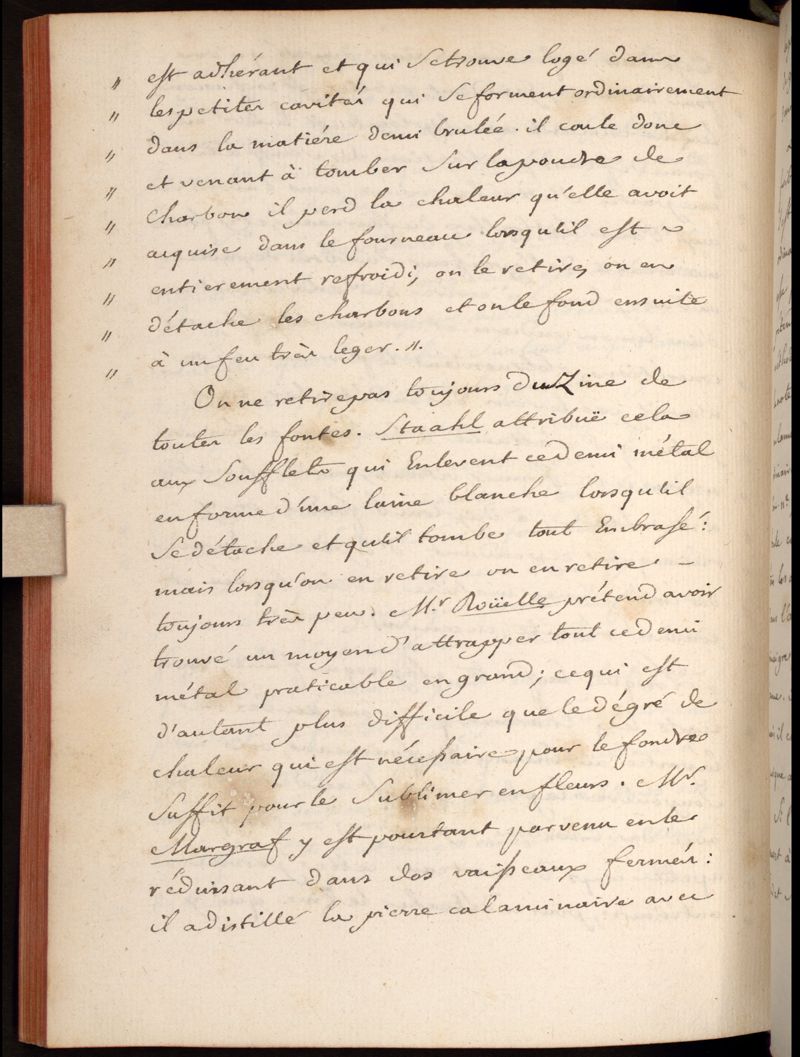 " est adhérant et qui se trouve logé dans
" les petites cavités qui se forment ordinairement
" dans la matiére demi brulée. il coule donc
" et venant à tomber sur la poudre de
" charbon il perd la chaleur qu'elle avoit
" acquise dans le fourneau lorsqu'il est ~
" entierement refroidi, on le retire, on en
" détache les charbons et on le fond ensuite
" à un feu très leger. ".
On ne retire pas toujours du Zinc de
toutes les fontes. Staahl attribuë cela
aux soufflets qui Enlevent ce demi métal
en forme d'une laine blanche lorsqu'il
se détache et qu'il tombe tout Embrasé:
mais lorsqu'on en retire on en retire –
toujours très peu. Mr. Roüelle prétend avoir
trouvé un moyen d'attrapper tout ce demi
métal praticable en grand; ce qui est
d'autant plus difficile que le dégré de
chaleur qui est nécessaire pour le fondre
suffit pour le sublimer en fleurs. Mr.
Margraf y est pourtant parvenu en le
réduisant dans des vaisseaux fermés:
il a distillé la pierre calaminaire avec